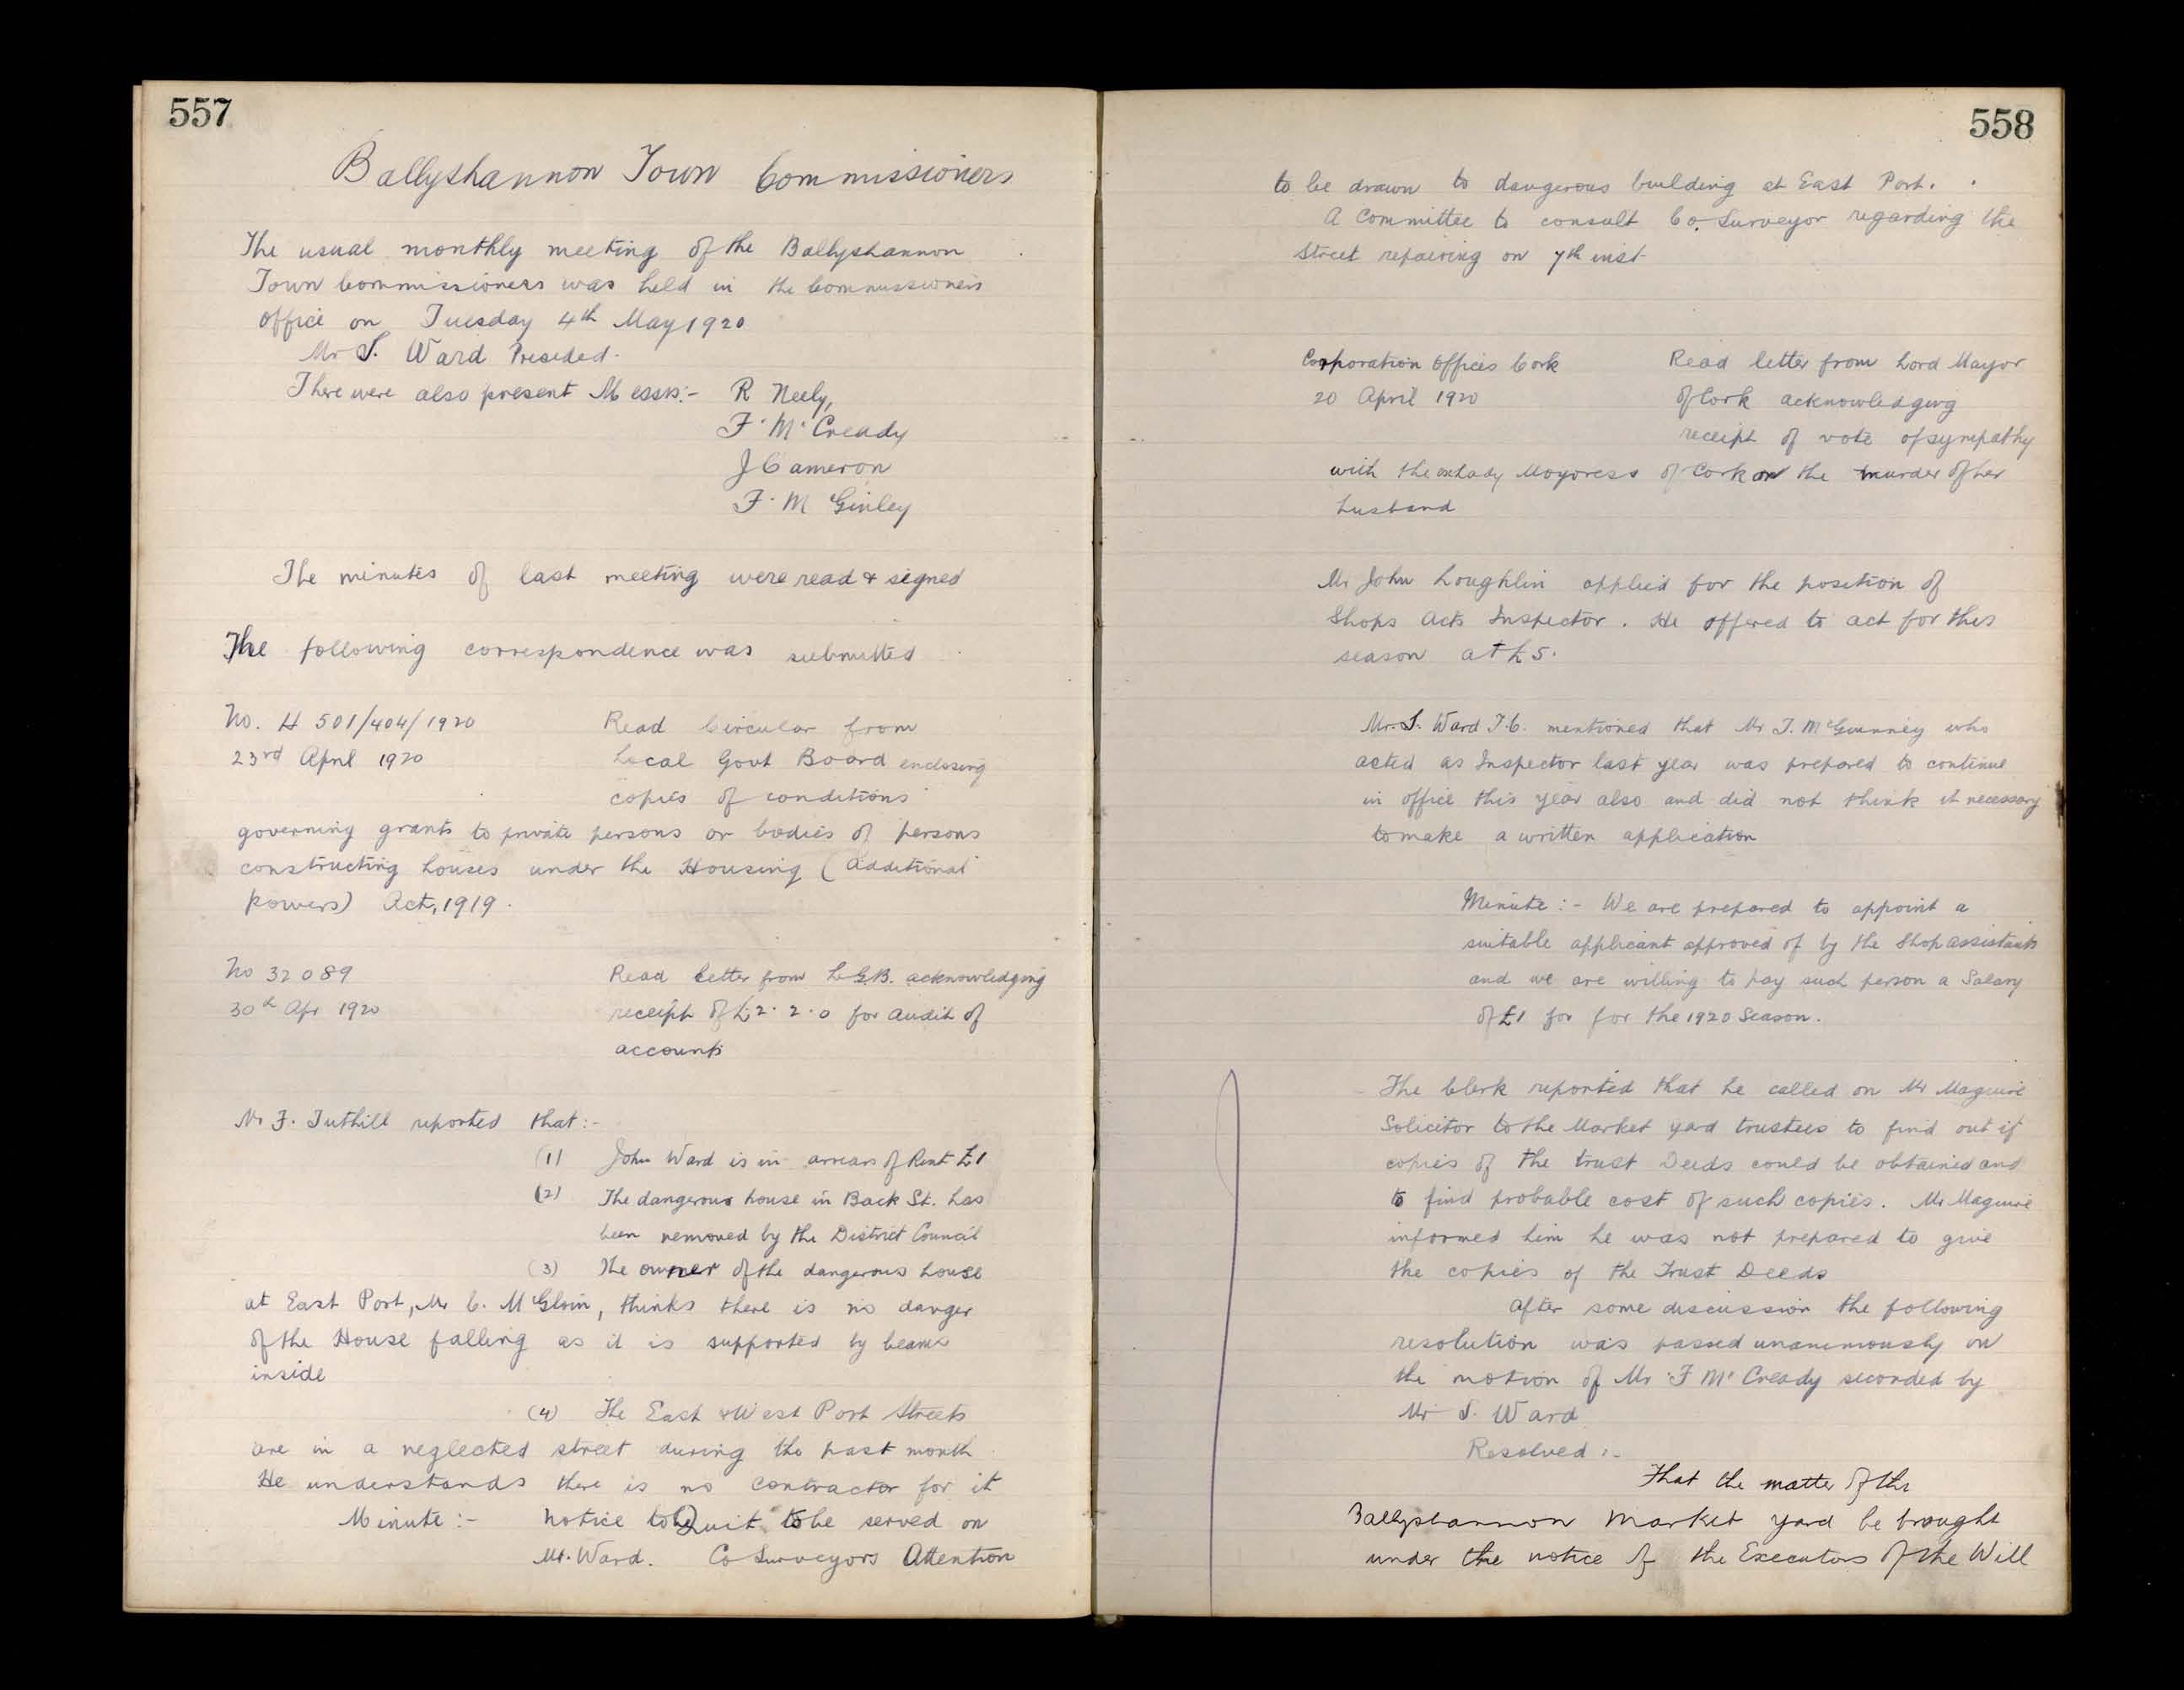 557
Ballyshannon Town Commissioners
The usual monthly meeting of the Ballyshannon
Town Commissioners was held in the Commissioners
office on Tuesday 4th May 1920
Mr S. Ward Presided.
There were also present Messrs:- R Neely,
F. McCready
J Cameron
F. McGinley
The minutes of last meeting were read & signed
The following correspondence was submitted
No. H 501/404/1920 Read Circular from
23rd April 1920 Local Govt Board enclosing
copies of conditions
governing grants to private persons or bodies of persons
constructing houses under the Housing (Additional
Powers) Act, 1919.
No 32089 Read letter from L.G.B. acknowledging
30th Apr 1920 receipt of £2.2.0 for audit of
accounts
Mr F. Tuthill reported that:-
(1) John Ward is in arrears of Rent £1
(2) The dangerous house in Back St. has
been removed by the District Council
(3) The owner of the dangerous house
at East Port, Mr C. McGloin, thinks there is no danger
of the House falling as it is supported by beams
inside
(4) The East & West Port Streets
are in a neglected street during the past month
He understands there is no contractor for it
Minute:- Notice to Quit to be served on
Mr. Ward. Co Surveyors Attention
558
to be drawn to dangerous building at East Port.
A Committee to consult Co. Surveyor regarding the
Street repairing on 7th inst
Corporation Offices Cork Read letter from Lord Mayor
20 April 1920 of Cork acknowledging
receipt of vote of sympathy
with the ex Lady Mayoress of Cork on the murder of her
husband
Mr John Loughlin applied for the position of
Shops Acts Inspector. He offered to act for this
season at £5.
Mr. S. Ward T.C. mentioned that Mr T. McGuinney who
acted as Inspector last year was prepared to continue
in office this year also and did not think it necessary
to make a written application
Minute:- We are prepared to appoint a
suitable applicant approved of by the Shop assistants
and we are willing to pay such person a Salary
of £1 for for the 1920 Season.
The Clerk reported that he called on Mr Maguire
Solicitor to the Market yard trustees to find out if
copies of the trust Deeds could be obtained and
to find probable cost of such copies. Mr Maguire
informed him he was not prepared to give
the copies of the Trust Deeds
After some discussion the following
resolution was passed unanimously on
the motion of Mr F McCready seconded by
Mr S. Ward
Resolved:-
That the matter of the
Ballyshannon Market yard be brought
under the notice of the Executors of the Will